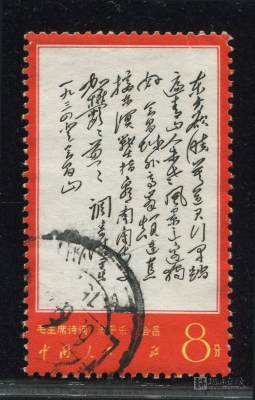 东方欲晓莫道君行早踏
遍青山人未老风景这边独
好会昌城外高峰颠连直
接东溟战士指看南粤更
加郁郁葱葱 调寄清
一九三四年会昌山
毛主席诗词 清平乐 会昌
中国人 政 8分